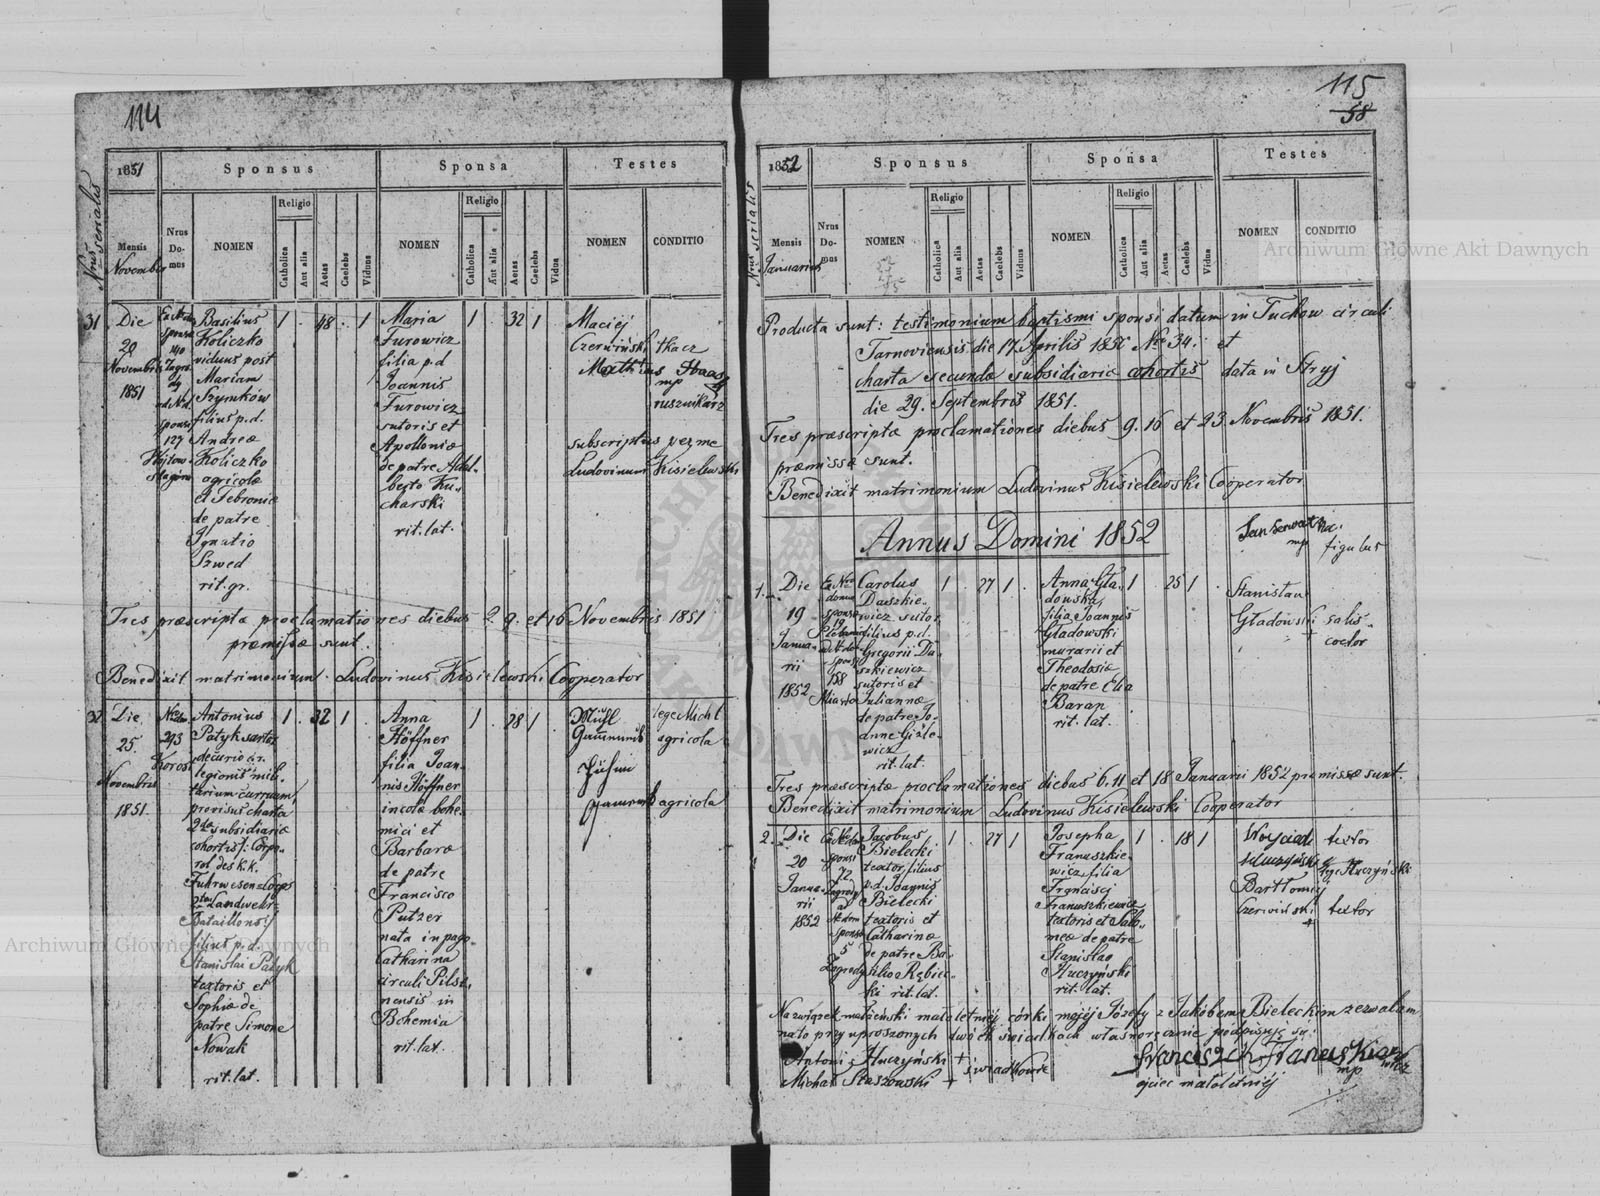 114
1851
Sponsus
Sponsa
Testes
Nrus serialis
Mensis
November
Nrus Do-mus
NOMEN
Religio
Catholica
Aut alia
Aetas
Caelebs
Viduus
NOMEN
Religio
Catholica
Aut alia
Aetas
Caelebs
Vidua
NOMEN
CONDITIO
31
Die
20
Novembris
1851
127
Basilius
Koliczko
viduus post
Mariam
Szymków
filius p.d.
Andreæ
Koliczko
agricolæ
et Febroniæ
de patre
Ignatio
Szwed
rit. gr.
1 . 48 . 1
Maria
Furowicz
filia p.d
Joannis
Furowicz
sutoris et
Apolloniæ
de patre Adal-
berto Ku-
charski
rit. lat.
1 . 32 1
Maciej
Czerwiński tkacz
Matthius Haas
mp
rusznikarz
subscriptus per me
Ludovinum Kisielewski
Tres præscriptæ proclamationes diebus 2. 9. et 16 Novembris 1851
præmissæ sunt.
Benedixit matrimonium Ludovinus Kisielewski Cooperator
32
Die
25.
Novembris
1851.
293
Antonius
Patyk sartor
decurio c.r.
legionis mili-
tarium curruum
provisus charta
2da subsidiariæ
cohortis /: Corpo-
ral des k.k.
Fuhrwesens Corps
2ten Landwehr
Bataillons:/
filius p.d.
Stanislai Patyk
textoris et
Sophiæ de
patre Simone
Nowak
rit. lat.
1 . 32 1
Anna
Höffner
filia Joan-
nis Höffner
incolæ bohe-
mici et
Barbaræ
de patre
Francisco
Putzer
nata in pago
Catharina
circuli Pilse-
nensis in
Bohemia
rit. lat.
1 . 28 1 .
lege Michl
agricola
agricola
115
58
1852
Sponsus
Sponsa
Testes
Nrus serialis
Mensis
Januarius
Nrus Do-mus
NOMEN
Religio
Catholica
Aut alia
Aetas
Caelebs
Viduus
NOMEN
Religio
Catholica
Aut alia
Aetas
Caelebs
Vidua
NOMEN
CONDITIO
Archiwum Główne Akt Dawnych
Producta sunt: testimonium baptismi sponsi datum in Tuchow circuli
Tarnoviensis die 17. Aprilis 1850 No 34. et
charta secundæ subsidiariæ cohortis data in Stryj
die 29. Septembris 1851.
Tres præscriptæ proclamationes diebus 9. 16 et 23. Novembris 1851.
præmissæ sunt.
Benedixit matrimonium Ludovinus Kisielewski Cooperator
Annus Domini 1852
mp
figulus
1.
Die
19
Janua-
rii
1852
158
Miasto
Carolus
Daszkie-
wicz sutor
filius p.d.
Gregorii Da-
szkiewicz
sutoris et
Juliannæ
de patre Jo-
anne Giżle-
wicz
rit. lat.
1 . 27 1 .
Anna Gła-
dowska,
filia Joannis
Gładowski
murarii et
Theodosiæ
de patre Elia
Baran
rit. lat.
1 . 25 1 .
Stanisław
Gładowski salis
+ coctor
Tres præscriptæ proclamationes diebus 6. 11 et 18 Januarii 1852 præmissæ sunt.
Benedixit matrimonium Ludovinus Kisielewski Cooperator
2.
Die
20
Janua-
rii
1852
Ex No
sponsi
72
Zagrody
sponsæ
5
Zagrody
Jacobus
Bielecki
textor, filius
p.d. Joannis
Bielecki
textoris et
Catharinæ
de patre Ba-
silio Rębiec-
ki rit. lat.
1 . 27 1 .
Josepha
Franuszkie-
wicz filia
Francisci
Franuszkiewicz
textoris et Salo-
meæ de patre
Stanislao
Huczyński
rit. lat.
1 . 18 1
Woyciech textor
lege Huczyński
Bartłomiej
Czerwiński textor
+
Na związek małżeński małoletniéj córki mojéj Józefy z Jakóbem Bieleckim zezwalam
na to przy uproszonych dwóch świadkach własnoręcznie podpisuję się:
Antoni Huczyński +
Michał Staszowski +
świadkowie
Franciszek Franuszkiewicz
mp
ojciec małoletniéj
Archiwum Główne Akt Dawnych